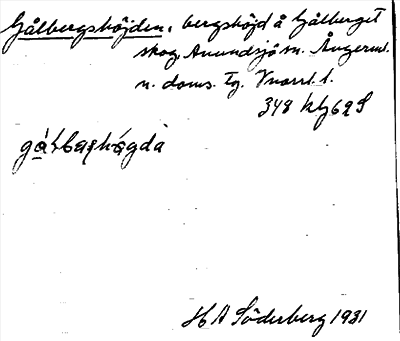 Gålbergshöjden, bergshöjd å Gålberget
skog, Anundsjö sn. Ångerml.
n. doms. tg. Vnorrl. l.
348 kbg 62 S
gálbaṣhǫ́gda
H A Söderberg 1931